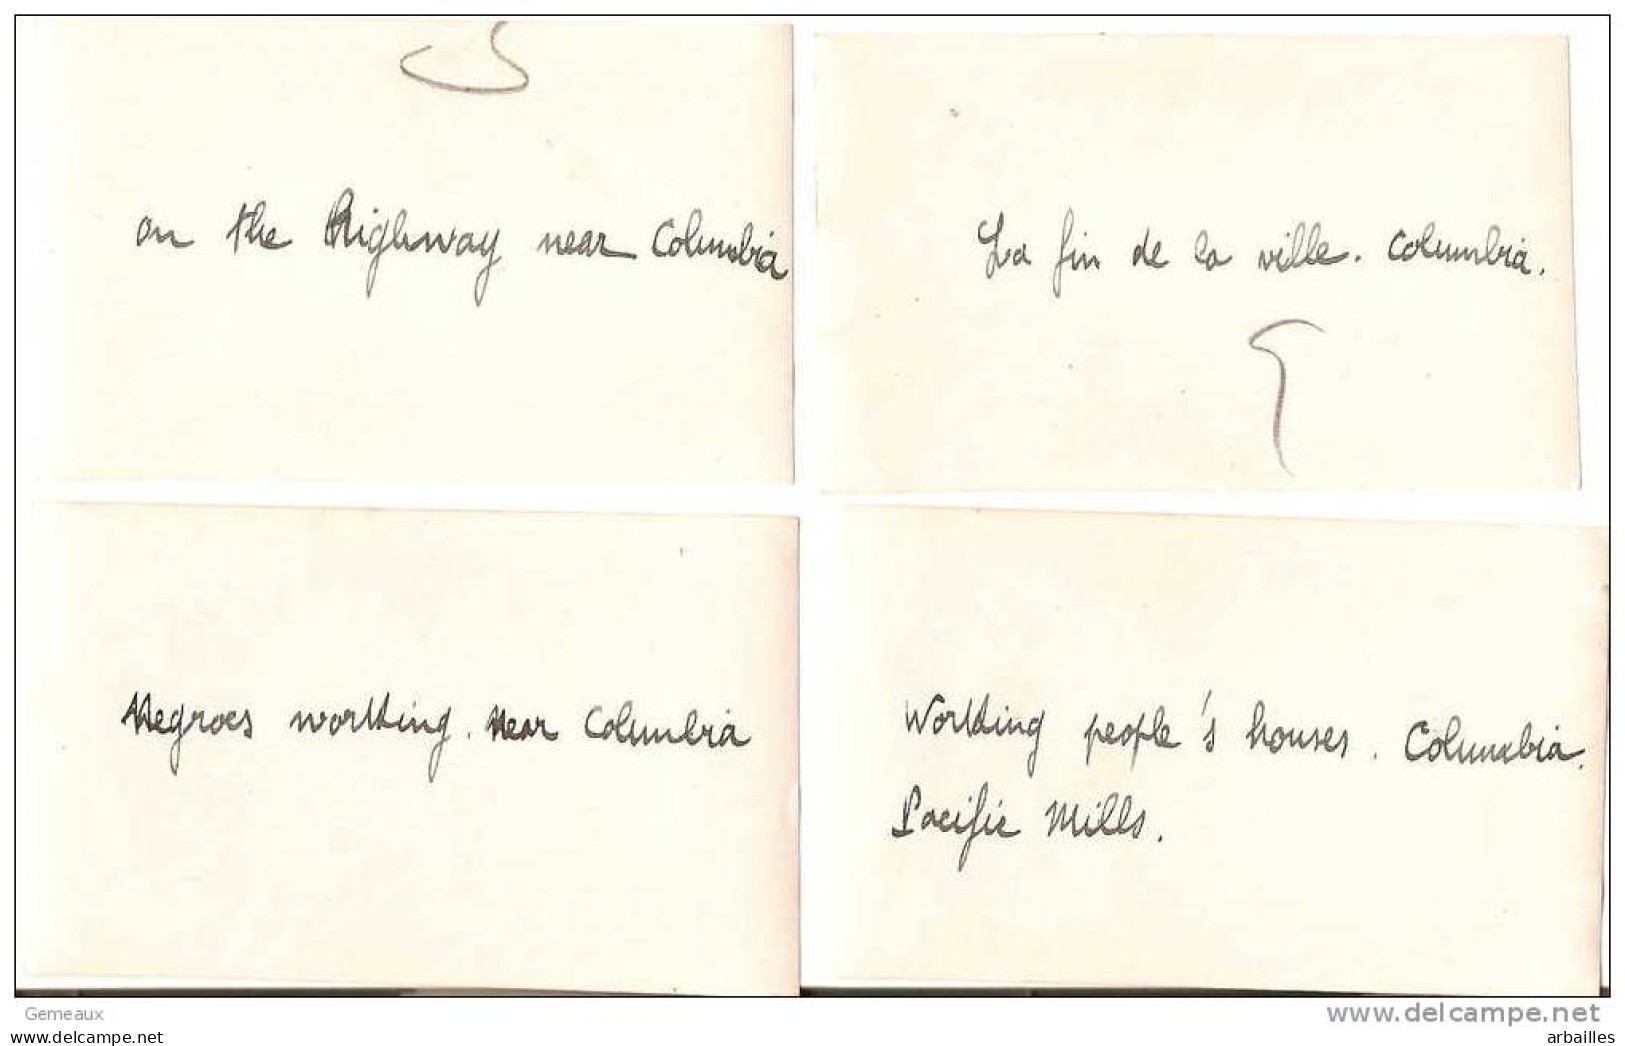 on the Highway near Columbia
La fin de la ville. Columbia.
Negroes working. near Columbia
Working people's houses. Columbia.
Pacific Mills.
Gemeaux
www.delcampe.net
arbailles